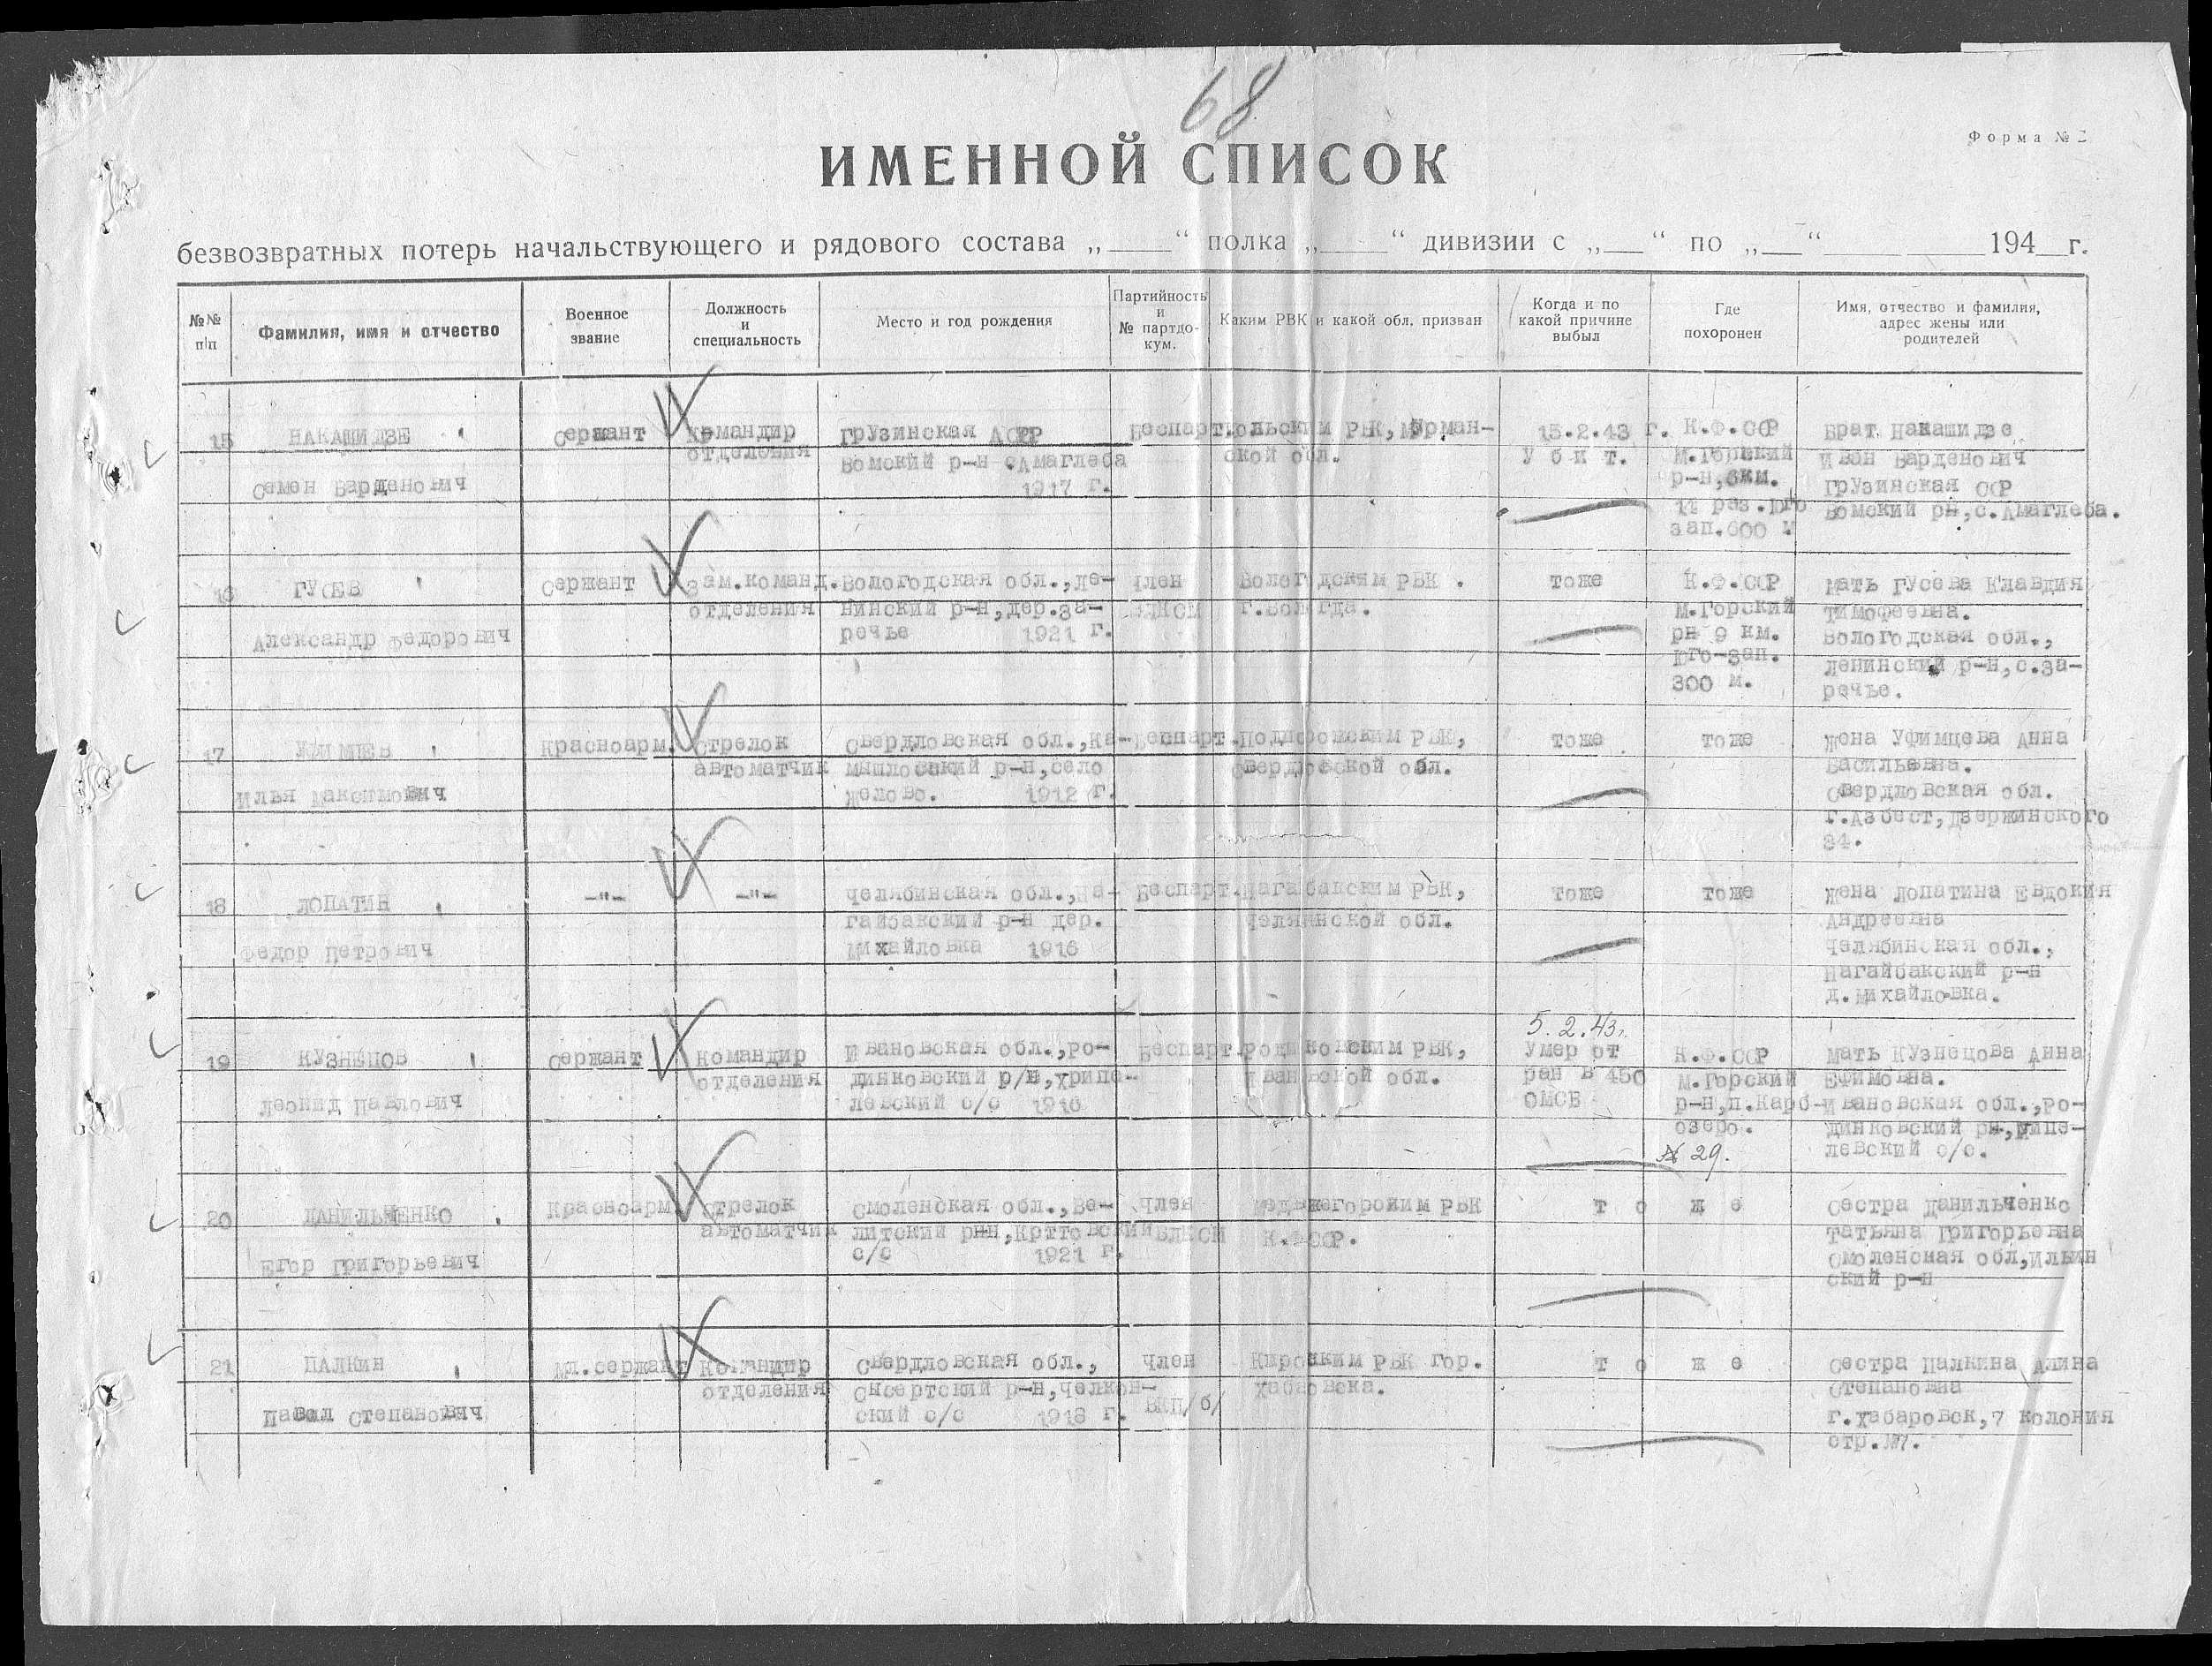 68
Форма №
ИМЕННОЙ СПИСОК
безвозвратных потерь начальствующего и рядового состава „_____“ полка „_____“ дивизии с „___“ по „___“ ____________ 194__г.
№№ п|п
Фамилия, имя и отчество
Военное звание
Должность и специальность
Место и год рождения
Партийность и № партдо-кум.
Каким РВК и какой обл. призван
Когда и по какой причине выбыл
Где похоронен
Имя, отчество и фамилия, адрес жены или родителей
15 НАКАШИДЗЕ Сержант Командир Грузинская АССР Беспарт. Кольским РВК, Мурман- 15.2.43 г. К.Ф.ССР Брат Накашидзе
отделения Вомский р-н с.Амаглеба ской обл. У б и т. М.Горский Иван Варденович
Семен Варденович 1917 г. р-н, 6км. Грузинская ССР
11 раз.юго Вомский рн,с.Амаглеба.
зап.600 м
16 ГУСЕВ Сержант Зам.команд. Вологодская обл.,Ле- Член Вологодским РВК . тоже К.Ф.ССР Мать Гусева Клавдия
отделения нинский р-н,дер.За- ВЛКСМ г.Вологда. М.Горский Тимофеевна.
Александр Федорович речье 1921 г. рн 9 км. Вологодская обл.,
юго-зап. Ленинский р-н,с.За-
300 м. речье.
17 УФИМЦЕВ Красноарм. Стрелок Свердловская обл.,Ка- Беспарт. РВК, тоже тоже Жена Уфимцева Анна
автоматчик мышловский р-н,село Свердловской обл. Васильевна.
Илья Максимович 1912 г. Свердловская обл.
г.Азбест,Дзержинского
34.
18 ЛОПАТИН —"— —"— Челябинская обл.,На- Беспарт. Нагайбакским РВК, тоже тоже Жена Лопатина Евдокия
гайбакский р-н дер. Челябинской обл. Андреевна
Федор Петрович Михайловка 1916 Челябинская обл.,
Нагайбакский р-н
д.Михайловка.
5.2.43г.
19 КУЗНЕЦОВ Сержант Командир Ивановская обл.,Ро- Беспарт. Родниковским РВК, Умер от К.Ф.ССР Мать Кузнецова Анна
отделения динковский р/н,Хрипе- Ивановской обл. ран в 450 М.Горский Ефимовна.
Леонид Павлович левский с/с 1916 ОМСБ р-н,п.Карб- Ивановская обл.,Ро-
озеро. динковский рн,
№ 29. левский с/с.
20 ДАНИЛЬЧЕНКО Красноарм. Стрелок Смоленская обл.,Ве- Член Медвежегорским РВК т о ж е Сестра Данильченко
автоматчик литский р-н, ВЛКСМ К.ФССР. Татьяна Григорьевна
Егор Григорьевич с/с 1921 г. Смоленская обл,Ильин
ский р-н
21 ПАЛКИН Мл.сержант Командир Свердловская обл., Член Кировским РВК гор. т о ж е Сестра Палкина Алина
отделения Сысертский р-н,Челкон- ВКП/б/ Хабаровска. Степановна
Павел Степанович ский с/с 1918 г. г.Хабаровск,7 колония
стр.№7.